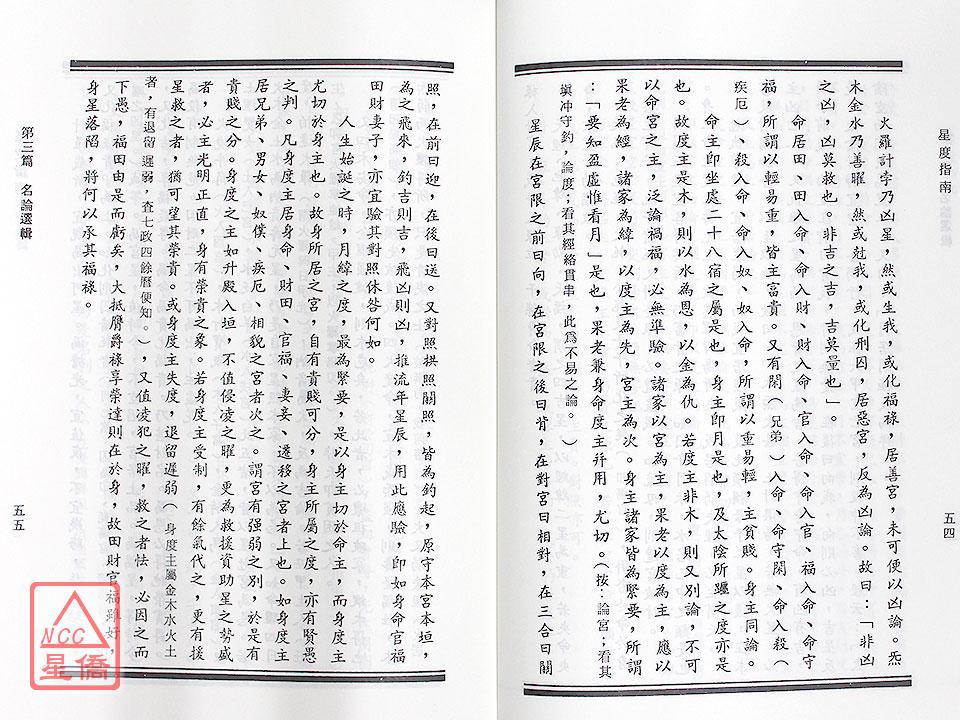 星度指南
五四
火羅計孛乃凶星，然或生我，或化福祿，居善宮，未可便以凶論。炁
木金水乃善曜，然或尅我，或化刑囚，居惡宮，反為凶論。故曰：「非凶
之凶，凶莫救也。非吉之吉，吉莫量也」。
命居田、田入命、命入財、財入命、官入命、命入官、福入命、命守
福，所謂以輕易重，皆主富貴。又有閑（兄弟）入命、命守閑、命入殺（
疾厄）、殺入命、命入奴、奴入命，所謂以重易輕，主貧賤。身主同論。
命主即坐處二十八宿之屬是也，身主即月是也，及太陰所躔之度亦是
也。故度主是木，則以水為恩，以金為仇。若度主非木，則又別論，不可
以命宮之主，泛論禍福，必無準驗。諸家以宮為主，果老以度為主，應以
果老為經，諸家為緯，以度主為先，宮主為次。身主諸家皆為緊要，所謂
：「要知盈虛惟看月」是也，果老兼身命度主幷用，尤切。（按：論宮；看其
塡冲守鈞，論度；看其經絡貫串，此爲不易之論。）
星辰在宮限之前曰向，在宮限之後曰背，在對宮曰相對，在三合曰關
照，在前曰迎，在後曰送。又對照拱照關照，皆為鈞起，原守本宮本垣，
為之飛來，鈞吉則吉，飛凶則凶，推流年星辰，用此應驗，即如身命官福
田財妻子，亦宜驗其對照休咎何如。
人生始誕之時，月緯之度，最為緊要，是以身主切於命主，而身度主
尤切於身主也。故身所居之宮，自有貴賤可分，身主所屬之度，亦有賢愚
之判。凡身度主居身命、財田、官福、妻妾、遷移之宮者上也。如身度主
居兄弟、男女、奴僕、疾厄、相貌之宮者次之。謂宮有强弱之別，於是有
貴賤之分。身度之主如升殿入垣，不值侵凌之曜，更為救援資助星之勢盛
者，必主光明正直，身有榮貴之象。若身度主受制，有餘氣代之，更有援
星救之者，猶可望其榮貴。或身度主失度，退留遲弱（身度主屬金木水火土
者，有退留遲弱，查七政四餘曆便知。），又值凌犯之曜，救之者怯，必因之而
下愚，福田由是而虧矣，大抵膺爵祿享榮達則在於身，故田財官福雖好，
身星落陷，將何以承其福祿。
第三篇　名論選輯
五五
NCC
星僑